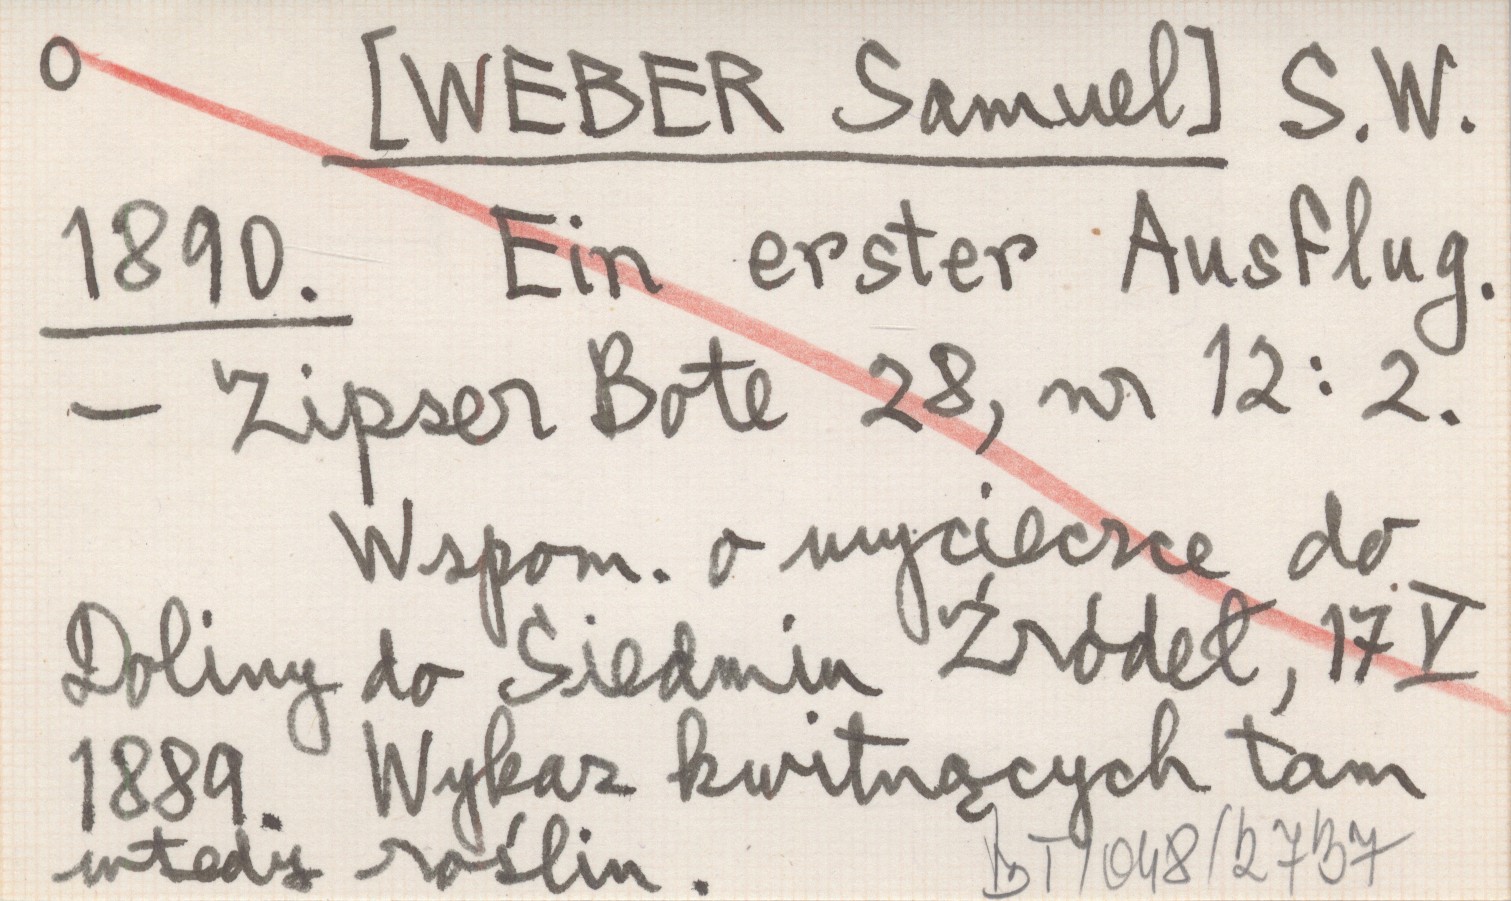 o [WEBER Samuel] S.W.
1890. Ein erster Ausflug.
— Zipser Bote 28, nr 12: 2.
Wspom. o wycieczce do
Doliny do Siedmiu Źródeł, 17 V
1889. Wykaz kwitnących tam
wtedy roślin.
BT/048/2737